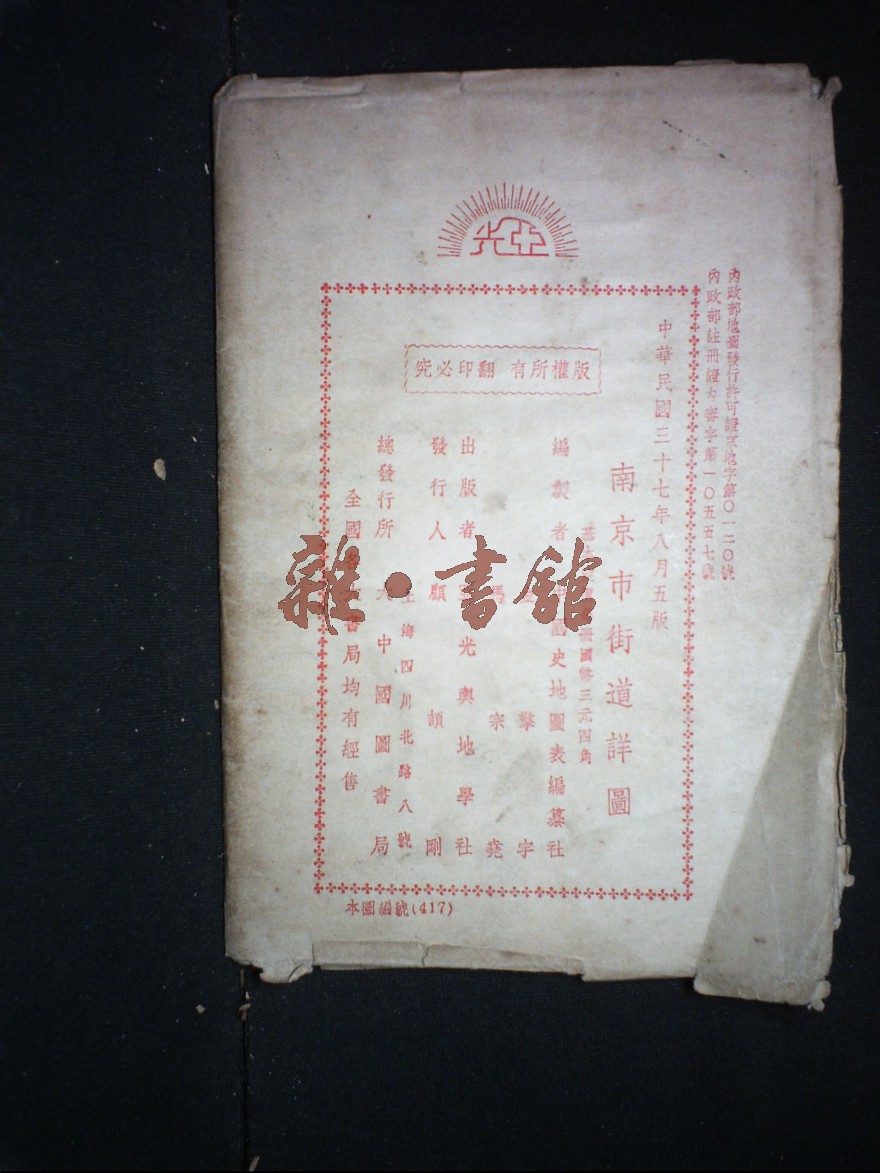 亞光
內政部地圖發行許可證京地字第〇一二〇號
內政部註冊證內審字第一〇五五七號
中華民國三十七年八月五版
南京市街道詳圖
冊國幣三元四角
編製者 國史地圖表編纂社
擎宇
宗堯
出版者 光輿地學社
發行人 顧頡剛
上海四川北路八號
總發行所 大中國圖書局
全國 書局均有經售
版權所有 翻印必究
本圖編號(417)
雜·書館